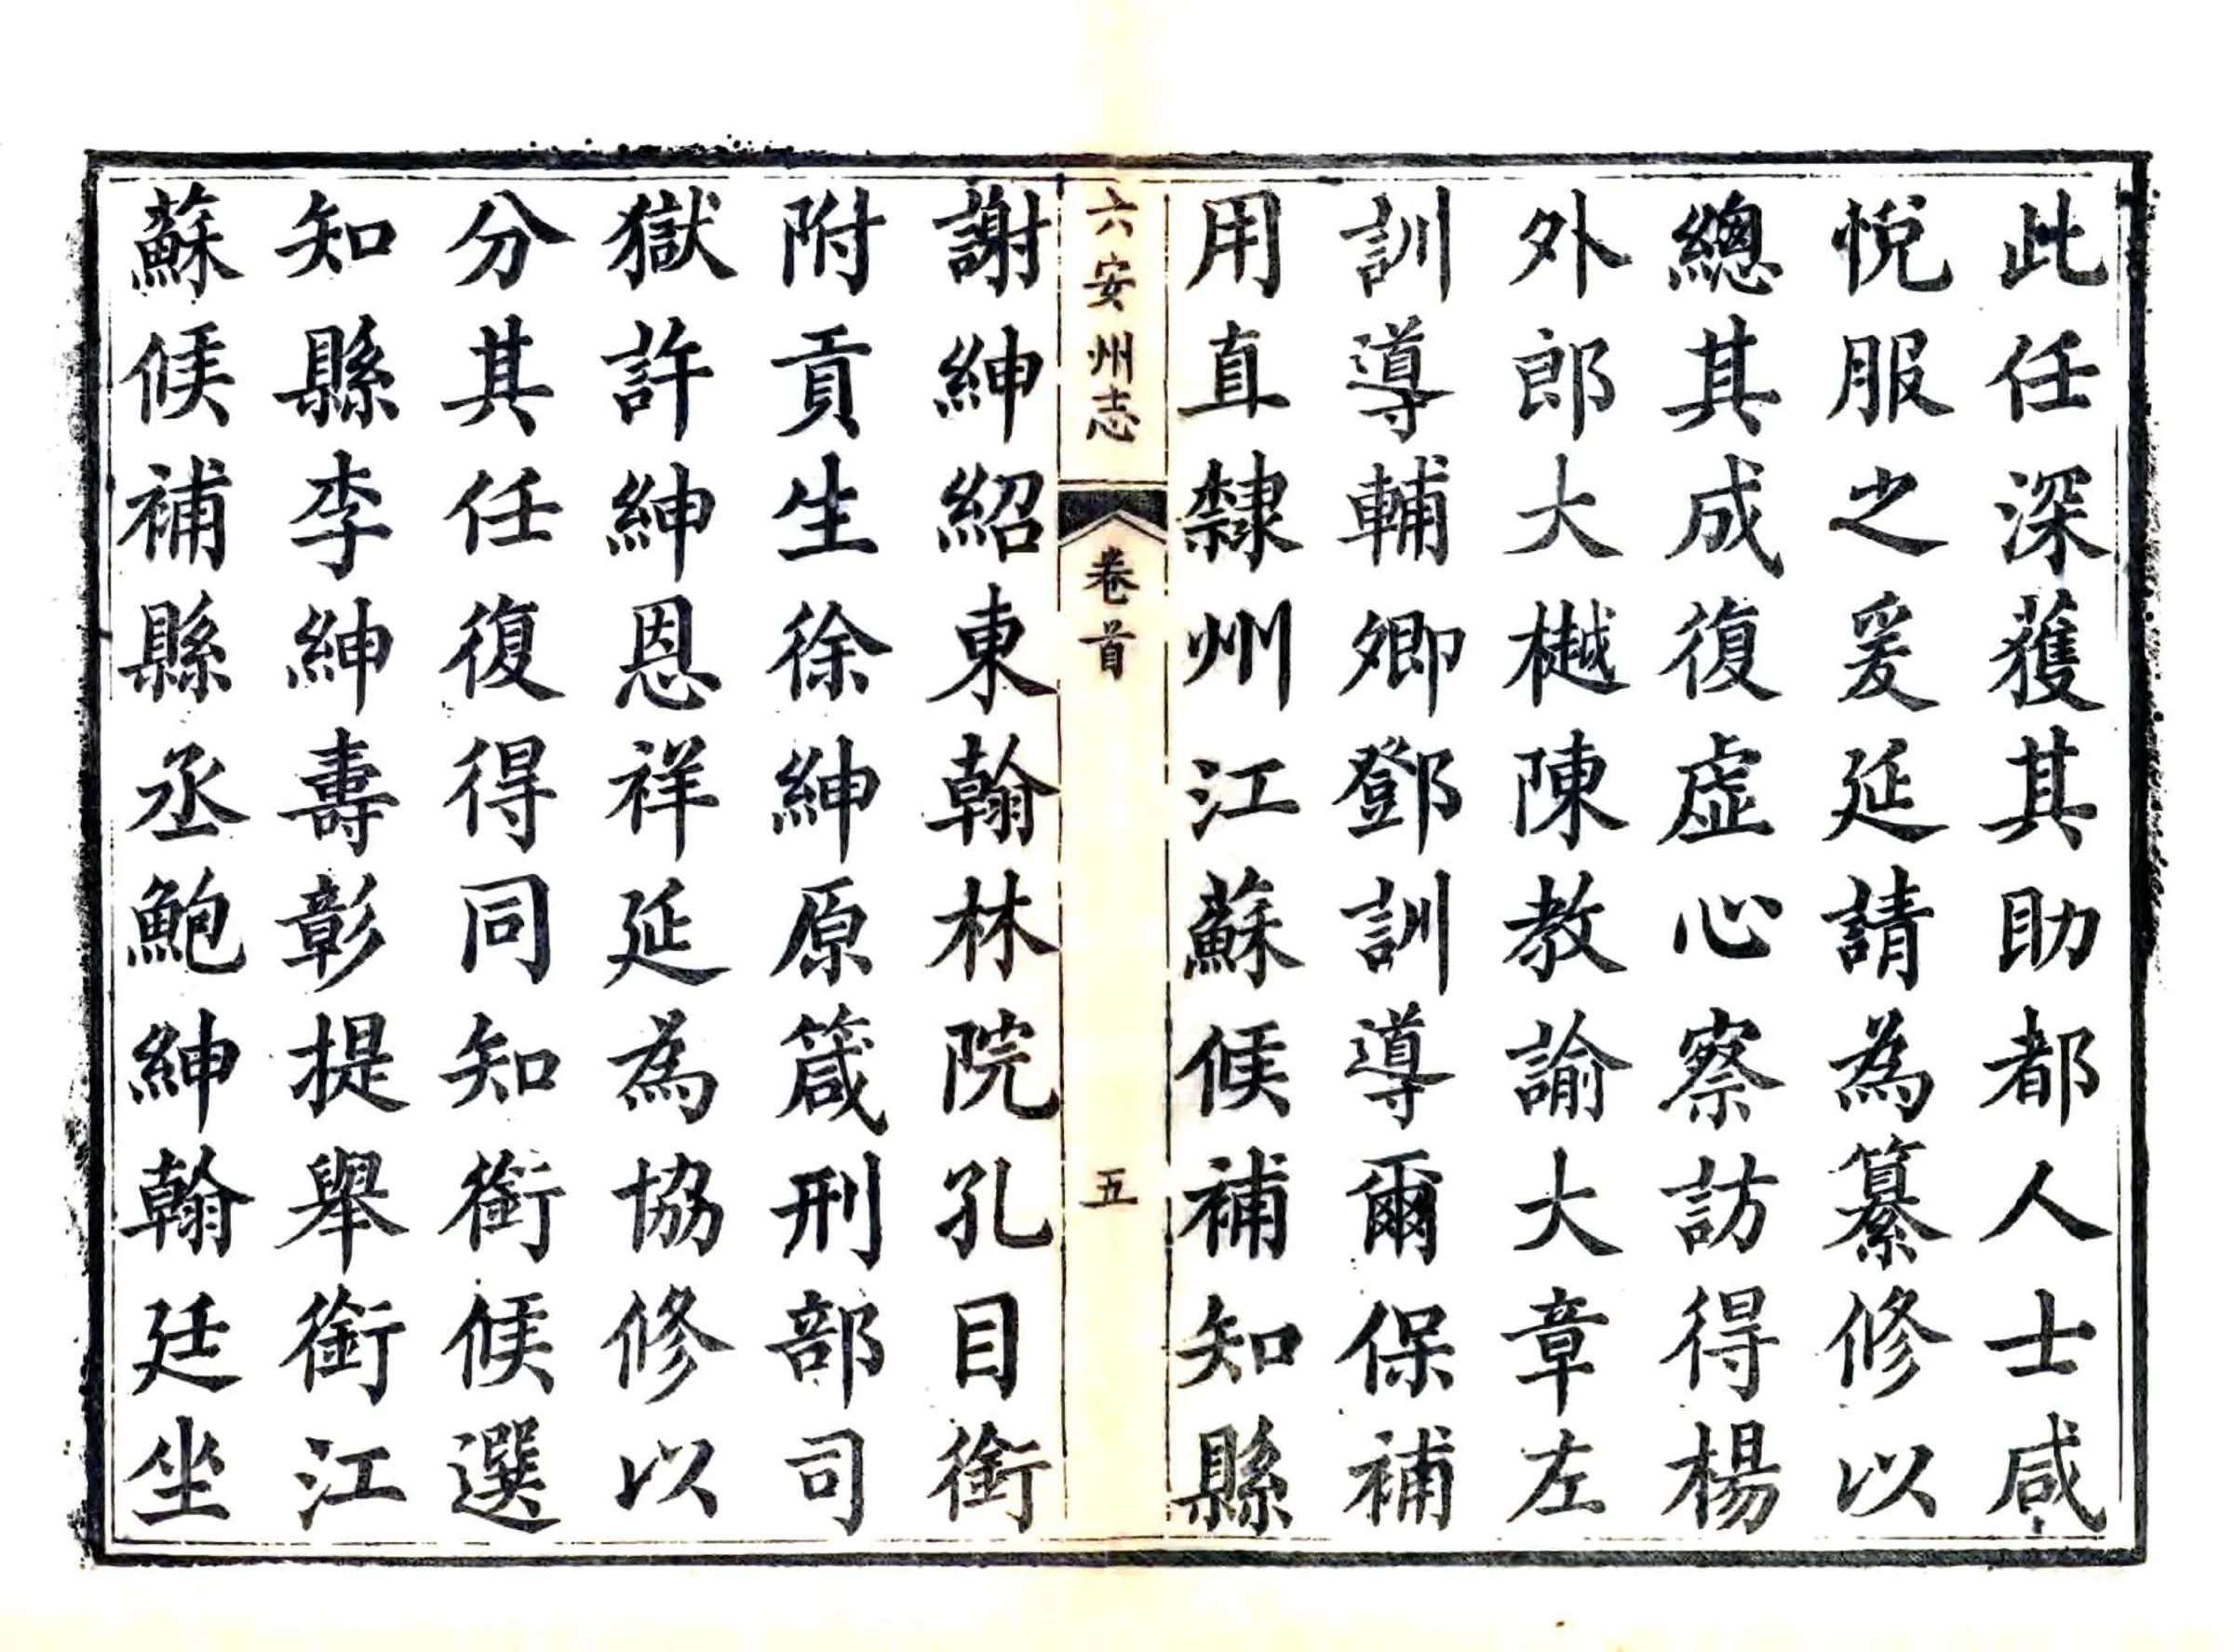 此任深獲其助都人士咸
悅服之爰延請為纂修以
總其成復虛心察訪得楊
外郎大樾陳教諭大章左
訓導輔卿鄧訓導爾保補
用直隸州江蘇候補知縣
六安州志
卷首
五
謝紳紹東翰林院孔目銜
附貢生徐紳原箴刑部司
獄許紳恩祥延為協修以
分其任復得同知銜候選
知縣李紳壽彰提舉銜江
蘇候補縣丞鮑紳翰廷坐